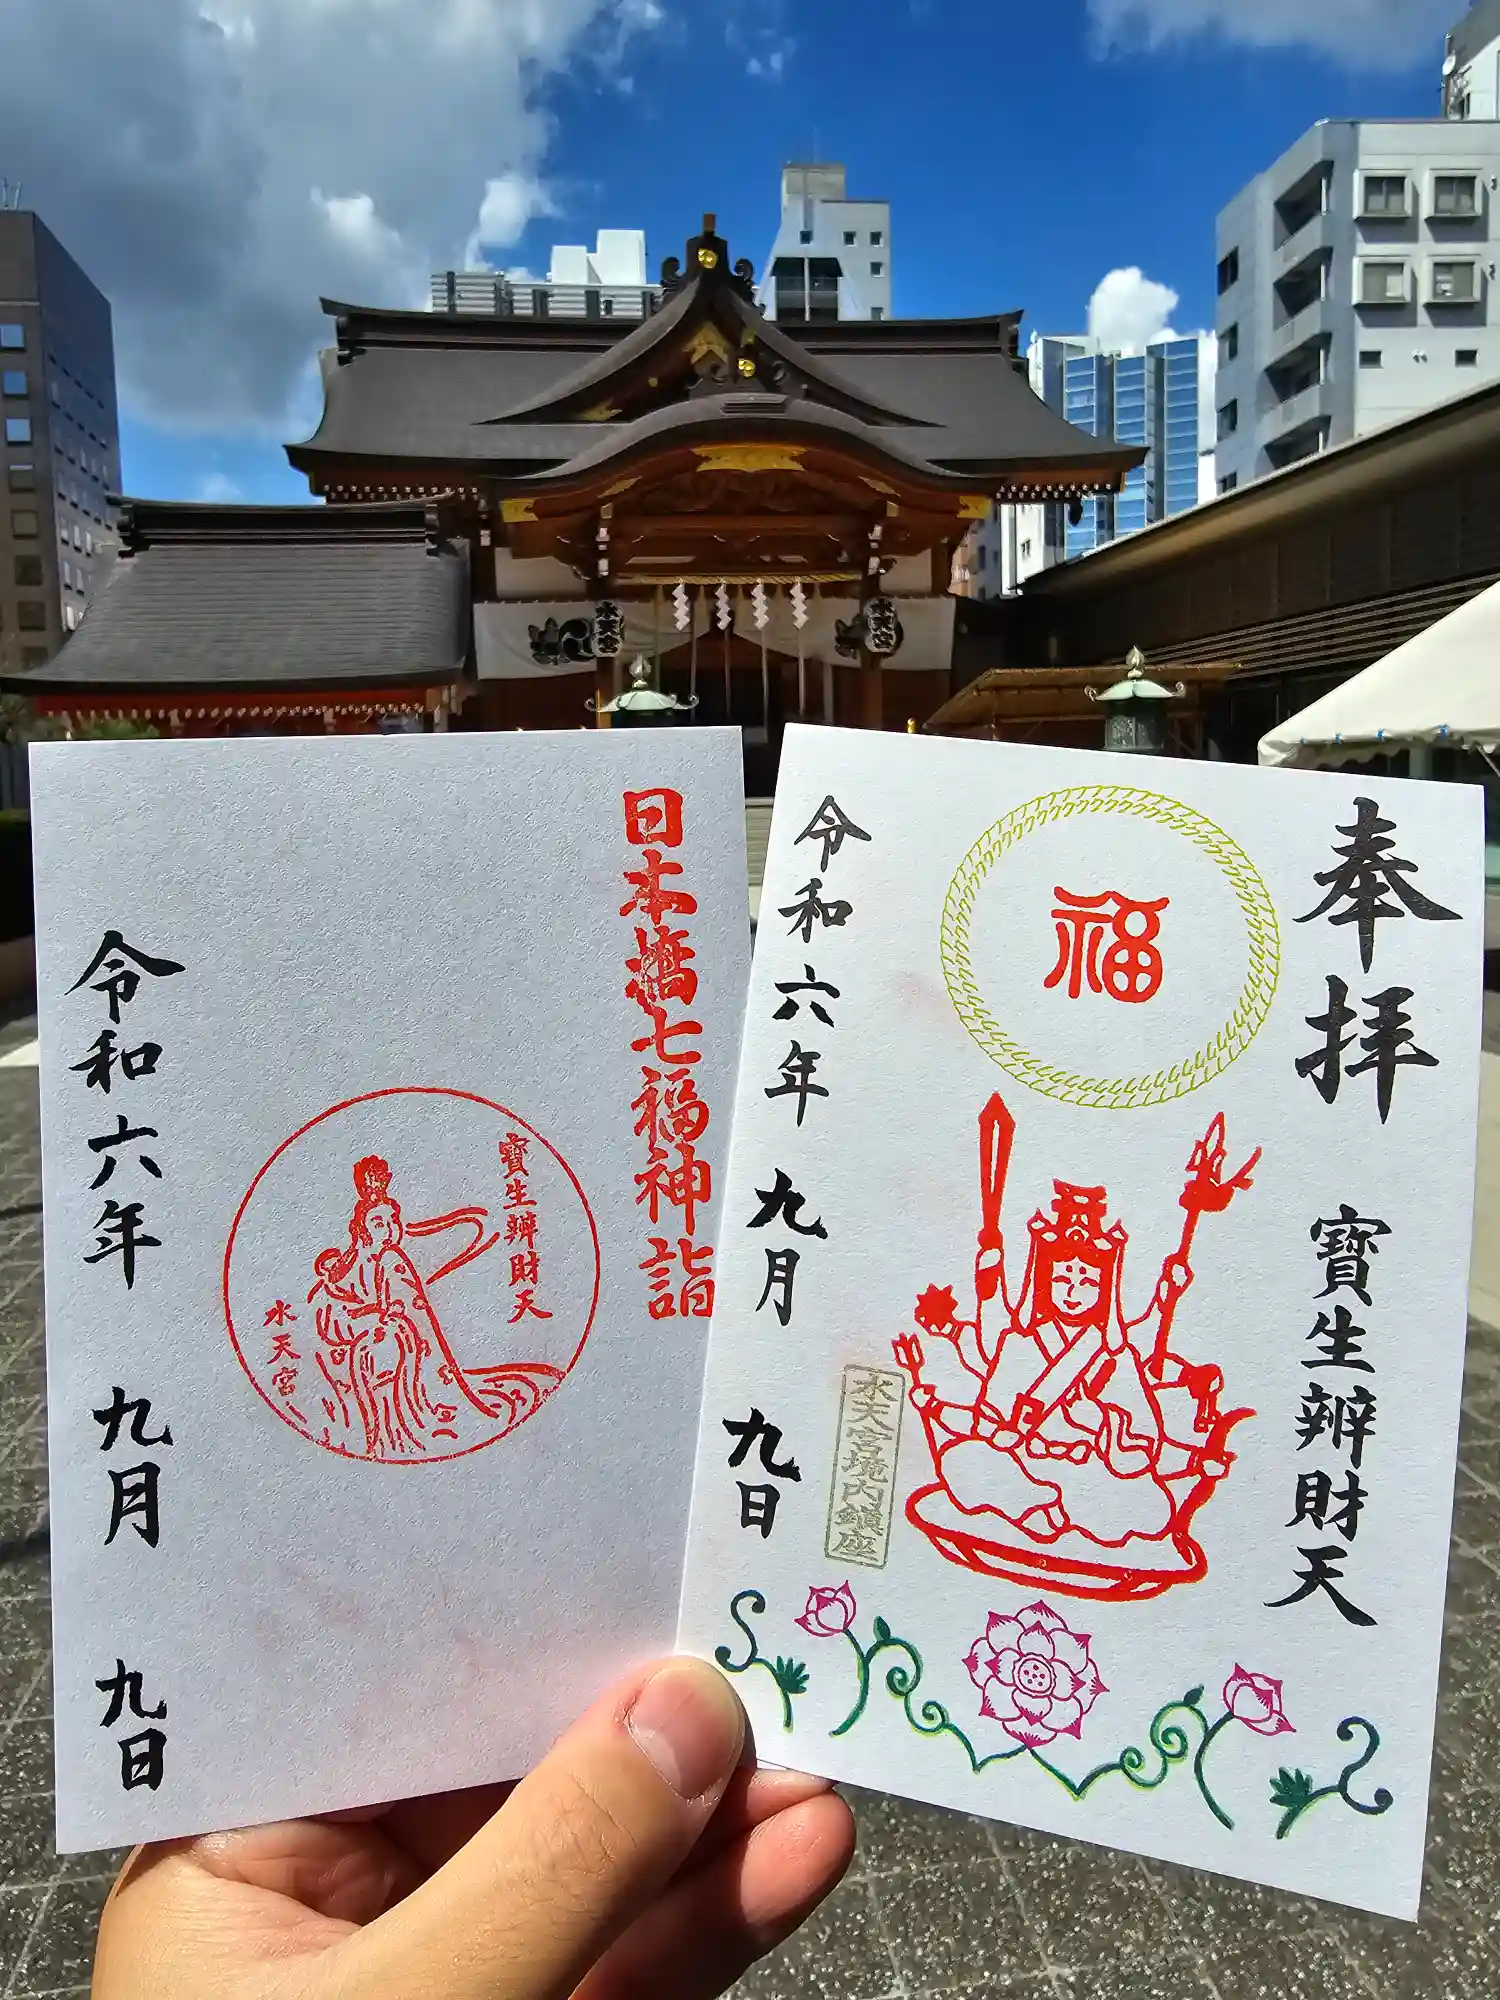 水天宮
水天宮
日本橋七福神詣
寶生辨財天
水天宮
令和六年 九月 九日
奉拝
寶生辨財天
福
水天宮境内鎮座
令和六年 九月 九日